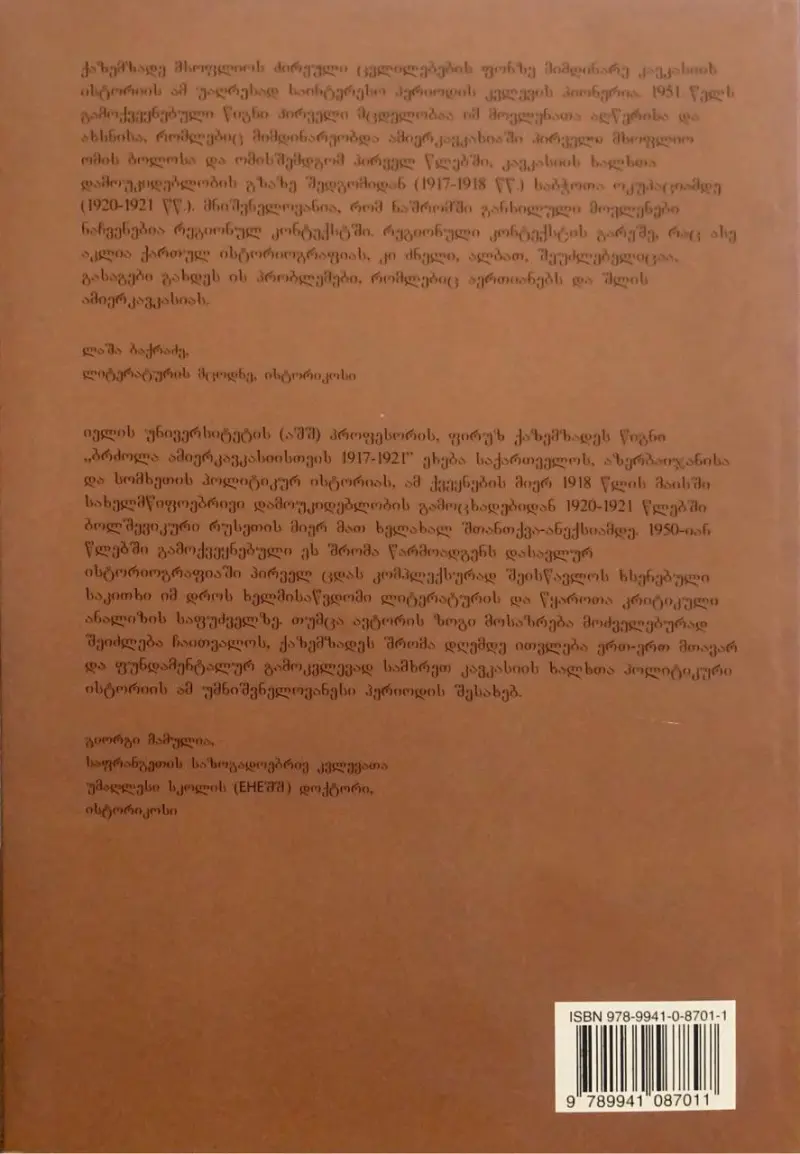 ქაზემზადე მსოფლიოს ძირეული ცვლილებების ფონზე მიმდინარე კავკასიის
ისტორიის ამ უაღრესად საინტერესო პერიოდის კვლევის პიონერია. 1951 წელს
გამოქვეყნებული წიგნი პირველი მცდელობაა იმ მოვლენათა აღწერისა და
ახსნისა, რომლებიც მიმდინარეობდა ამიერკავკასიაში პირველი მსოფლიო
ომის ბოლოსა და ომისშემდგომ პირველ წლებში, კავკასიის ხალხთა
დამოუკიდებლობის გზაზე შედგომიდან (1917-1918 წწ.) საბჭოთა ოკუპაციამდე
(1920-1921 წწ.). მნიშვნელოვანია, რომ ნაშრომში განხილული მოვლენები
ნაჩვენებია რეგიონულ კონტექსტში. რეგიონული კონტექსტის გარეშე, რაც ასე
აკლია ქართულ ისტორიოგრაფიას, კი ძნელი, ალბათ, შეუძლებელიცაა,
გასაგები გახდეს ის პრობლემები, რომლებიც აერთიანებს და შლის
ამიერკავკასიას.
ლაშა ბაქრაძე,
ლიტერატურის მცოდნე, ისტორიკოსი
იელის უნივერსიტეტის (აშშ) პროფესორის, ფირუზ ქაზემზადეს წიგნი
„ბრძოლა ამიერკავკასიისთვის 1917-1921” ეხება საქართველოს, აზერბაიჯანისა
და სომხეთის პოლიტიკურ ისტორიას, ამ ქვეყნების მიერ 1918 წლის მაისში
სახელმწიფოებრივი დამოუკიდებლობის გამოცხადებიდან 1920-1921 წლებში
ბოლშევიკური რუსეთის მიერ მათ ხელახალ შთანთქვა-ანექსიამდე. 1950-იან
წლებში გამოქვეყნებული ეს შრომა წარმოადგენს დასავლურ
ისტორიოგრაფიაში პირველ ცდას კომპლექსურად შეისწავლოს ხსენებული
საკითხი იმ დროს ხელმისაწვდომი ლიტერატურის და წყაროთა კრიტიკული
ანალიზის საფუძველზე. თუმცა ავტორის ზოგი მოსაზრება მოძველებურად
შეიძლება ჩაითვალოს, ქაზემზადეს შრომა დღემდე ითვლება ერთ-ერთ მთავარ
და ფუნდამენტალურ გამოკვლევად სამხრეთ კავკასიის ხალხთა პოლიტიკური
ისტორიის ამ უმნიშვნელოვანესი პერიოდის შესახებ.
გიორგი მამულია,
საფრანგეთის საზოგადოებრივ კვლევათა
უმაღლესი სკოლის (EHEშშ) დოქტორი,
ისტორიკოსი
ISBN 978-9941-0-8701-1
9 789941 087011